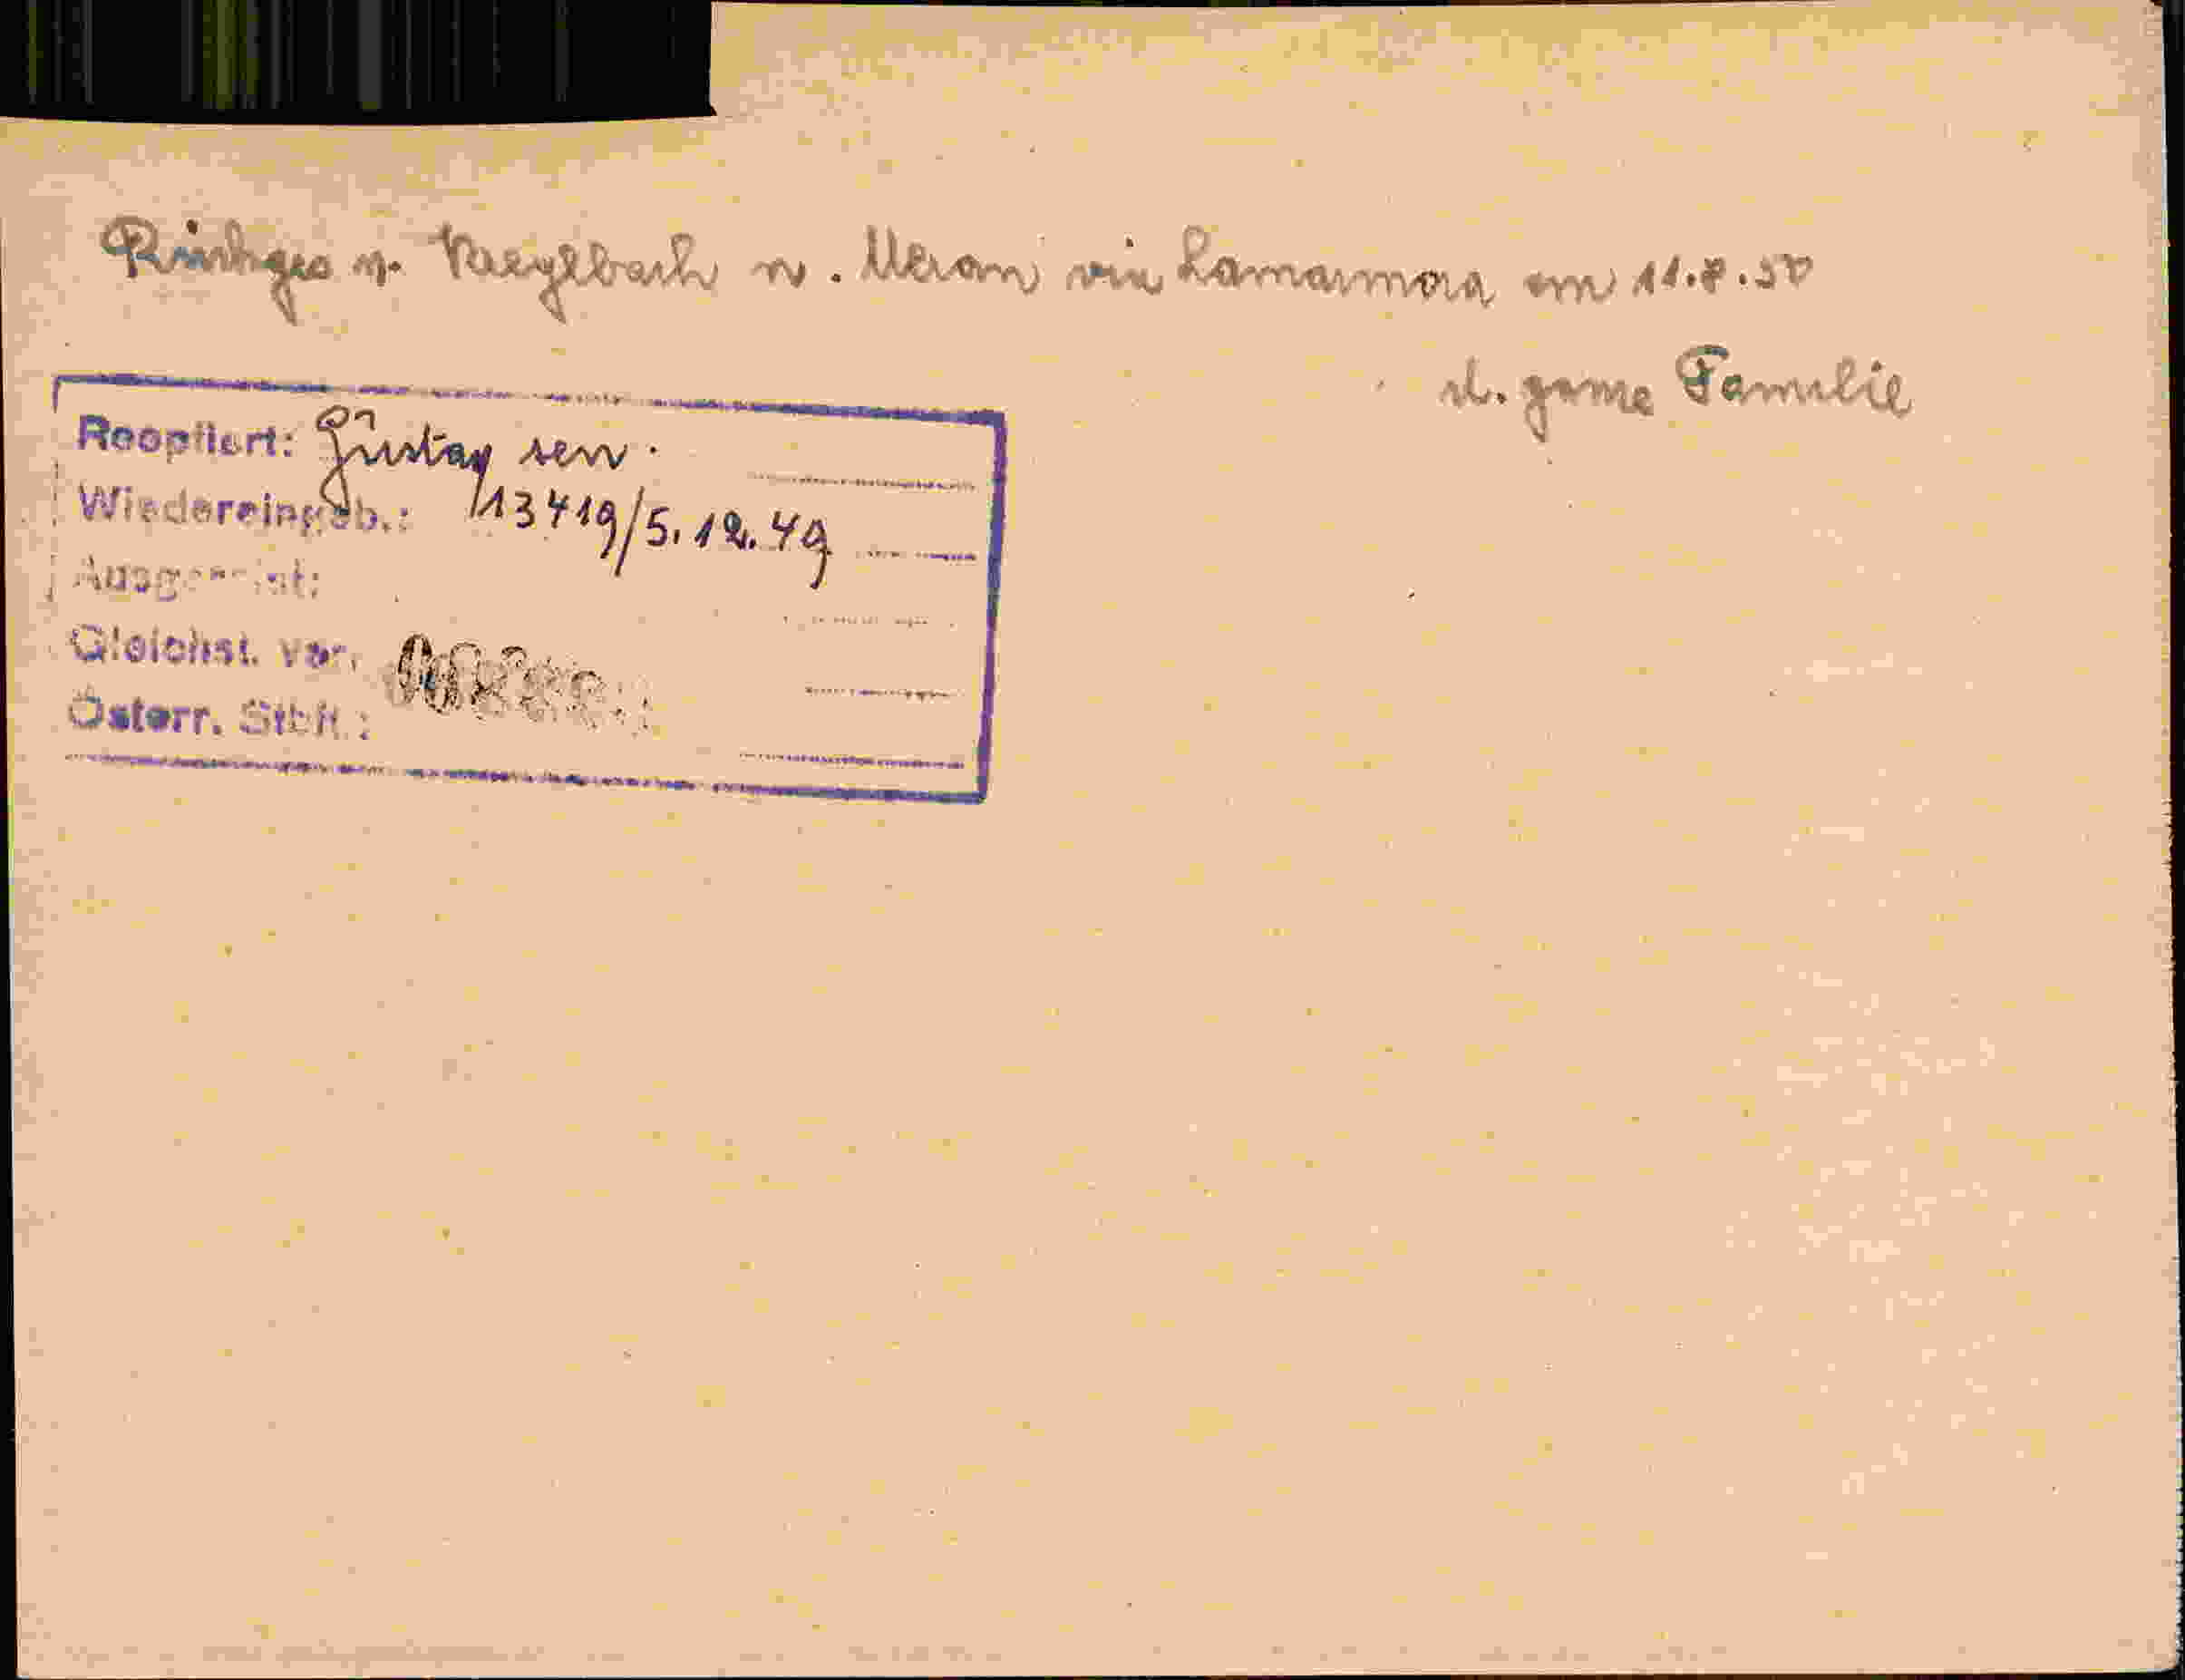 Rückges v. Kreglbach n. Meran via Lamarmora am 11.8.50
d. ganze Familie
Reoptiert: Gustav sen.
Wiedereingeb.: 13419/5.12.49
Ausgereist:
Gleichst. ver.
Österr. Stbft.: